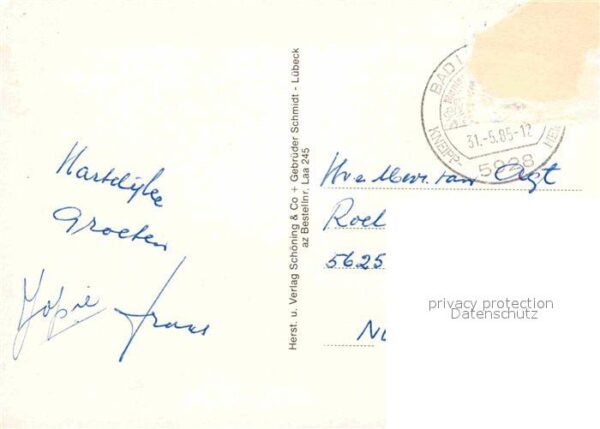 Hartelijke
Groeten
Jopie Frans
Herst. u. Verlag Schöning & Co + Gebrüder Schmidt - Lübeck
az Bestellnr. Laa 245
BAD L
31.-5.85-12
KNEIPP-
HEIL
5928
van
Roel
5625
privacy protection
Datenschutz